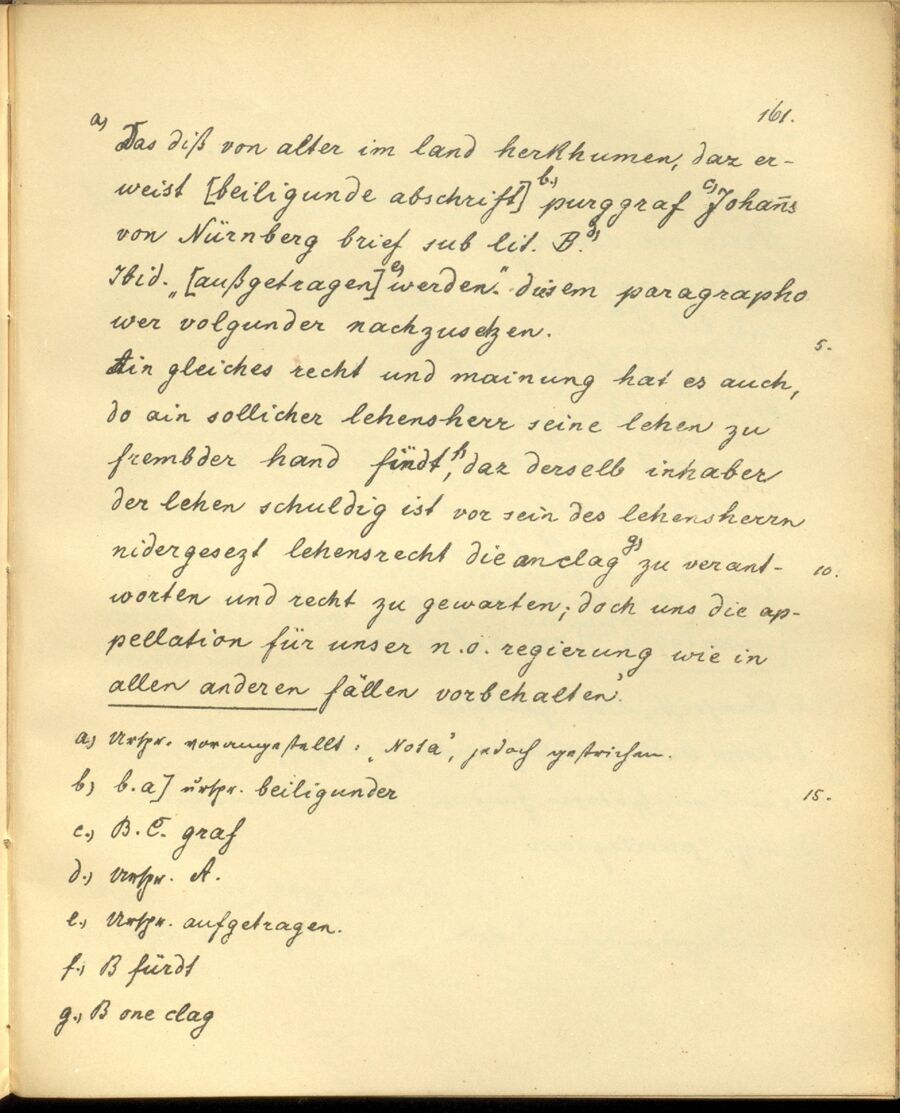 161.
a) Das diß von alter im land herkhumen, daz er-
weist [beiligunde abschrift] b.) purggraf c.) Johan̄s
von Nürnberg brief sub lit. B. d.)
Ibid. „[außgetragen] e) werden." disem paragrapho
wer volgunder nachzusetzen.
5.
Ain gleiches recht und mainung hat es auch,
do ain sollicher lehensherr seine lehen zu
frembder hand findt f.), daz derselb inhaber
der lehen schuldig ist vor sein des lehensherrn
nidergesezt lehensrecht die anclag g.) zu verant-
10.
worten und recht zu gewarten; doch uns die ap-
pellation für unser n. ö. regierung wie in
allen anderen fällen vorbehalten.
a.) Urspr. vorangestellt: „Nota", jedoch gestrichen.
b.) b. a] urspr. beiligunder
15.
c.) B. C. graf
d.) Urspr. A.
e.) Urspr. aufgetragen.
f.) B fürdt
g.) B one clag